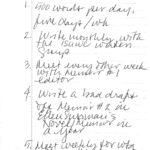 1. 500 words per day.
five days / wk
2. Write monthly with
the
group
3. Meet every other week
with Memoir #1
editor
4. Write a bad draft
of a Memoir #2 in
Novel/Memoir in
a Year
5. Meet weekly for who